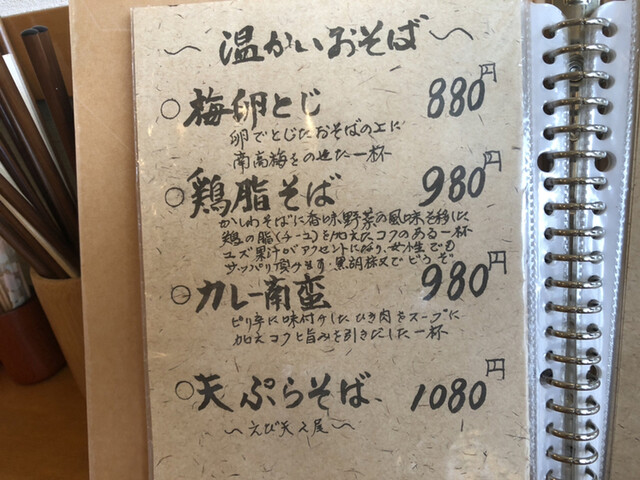 〜 温かいおそば 〜
○ 梅卵とじ 880円
卵でとじたおそばの上に
南高梅をのせた一杯
○ 鶏脂そば 980円
かしわそばに香味野菜の風味を移した
鶏の脂(チーユ)を加えたコクのある一杯
ユズ果汁がアクセントになり、女性でも
サッパリ頂けます・黒胡椒又でどうぞ
○ カレー南蛮 980円
ピリ辛に味付けしたひき肉をスープに
加えコクと旨みを引きだした一杯
○ 天ぷらそば 1080円
〜えび天2尾〜